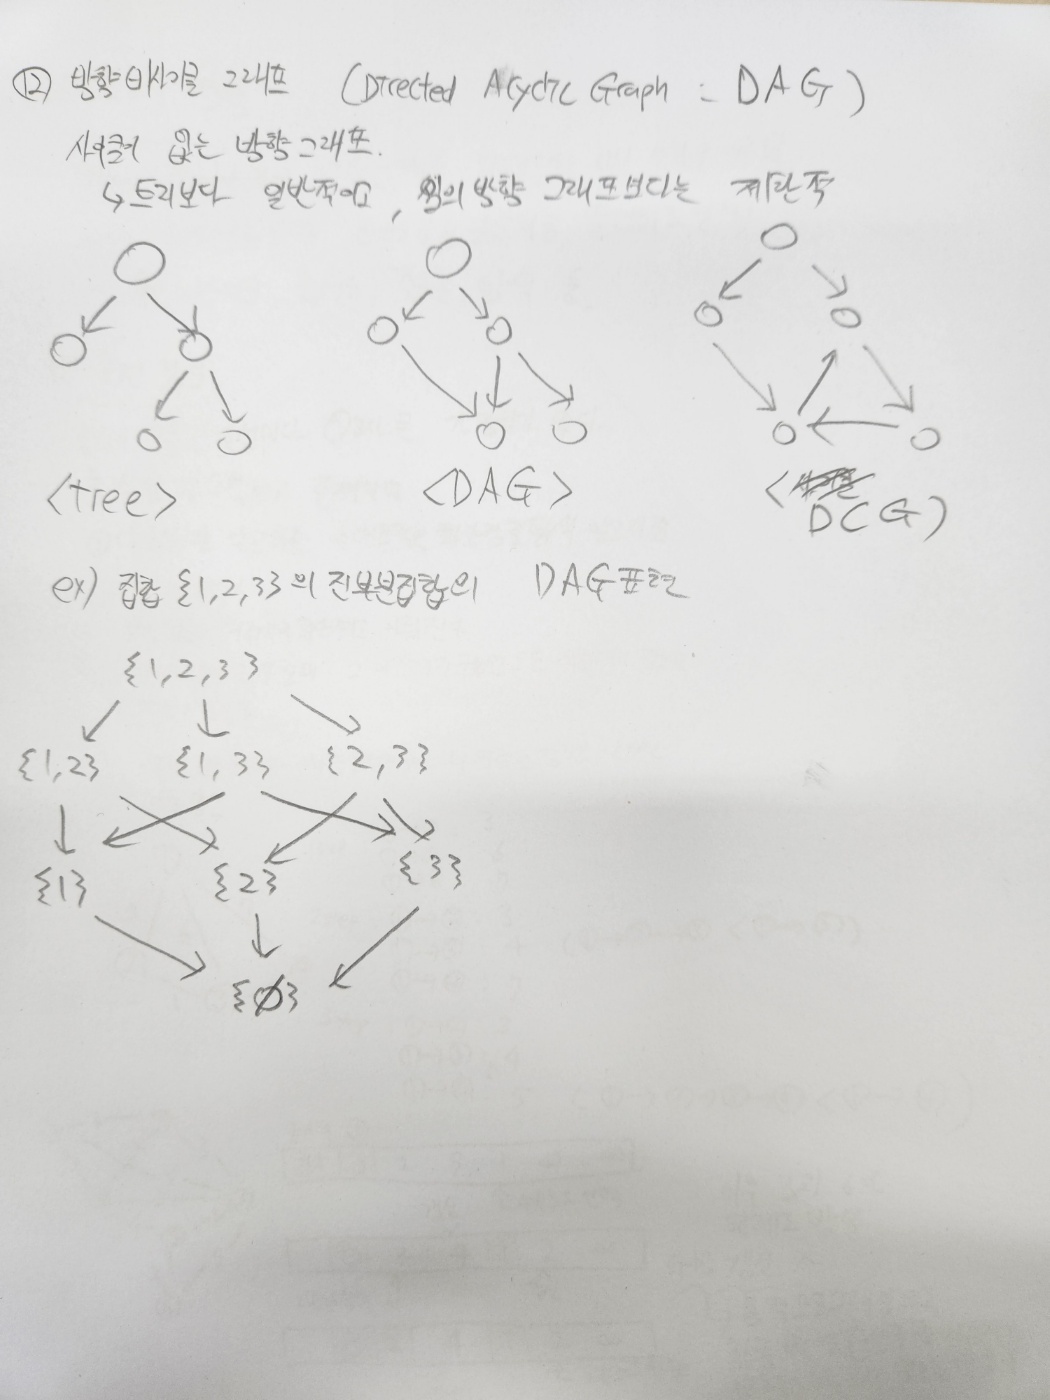 ⑫ 방향 비사이클 그래프 (Directed Acyclic Graph : DAG)
사이클이 없는 방향그래프.
↳ 트리보다 일반적이고, 임의 방향 그래프보다는 제한적
<tree> <DAG> < DCG)
ex) 집합 {1,2,3}의 진부분집합의 DAG표현
{1,2,3}
{1,2} {1,3} {2,3}
{1} {2} {3}
{∅}